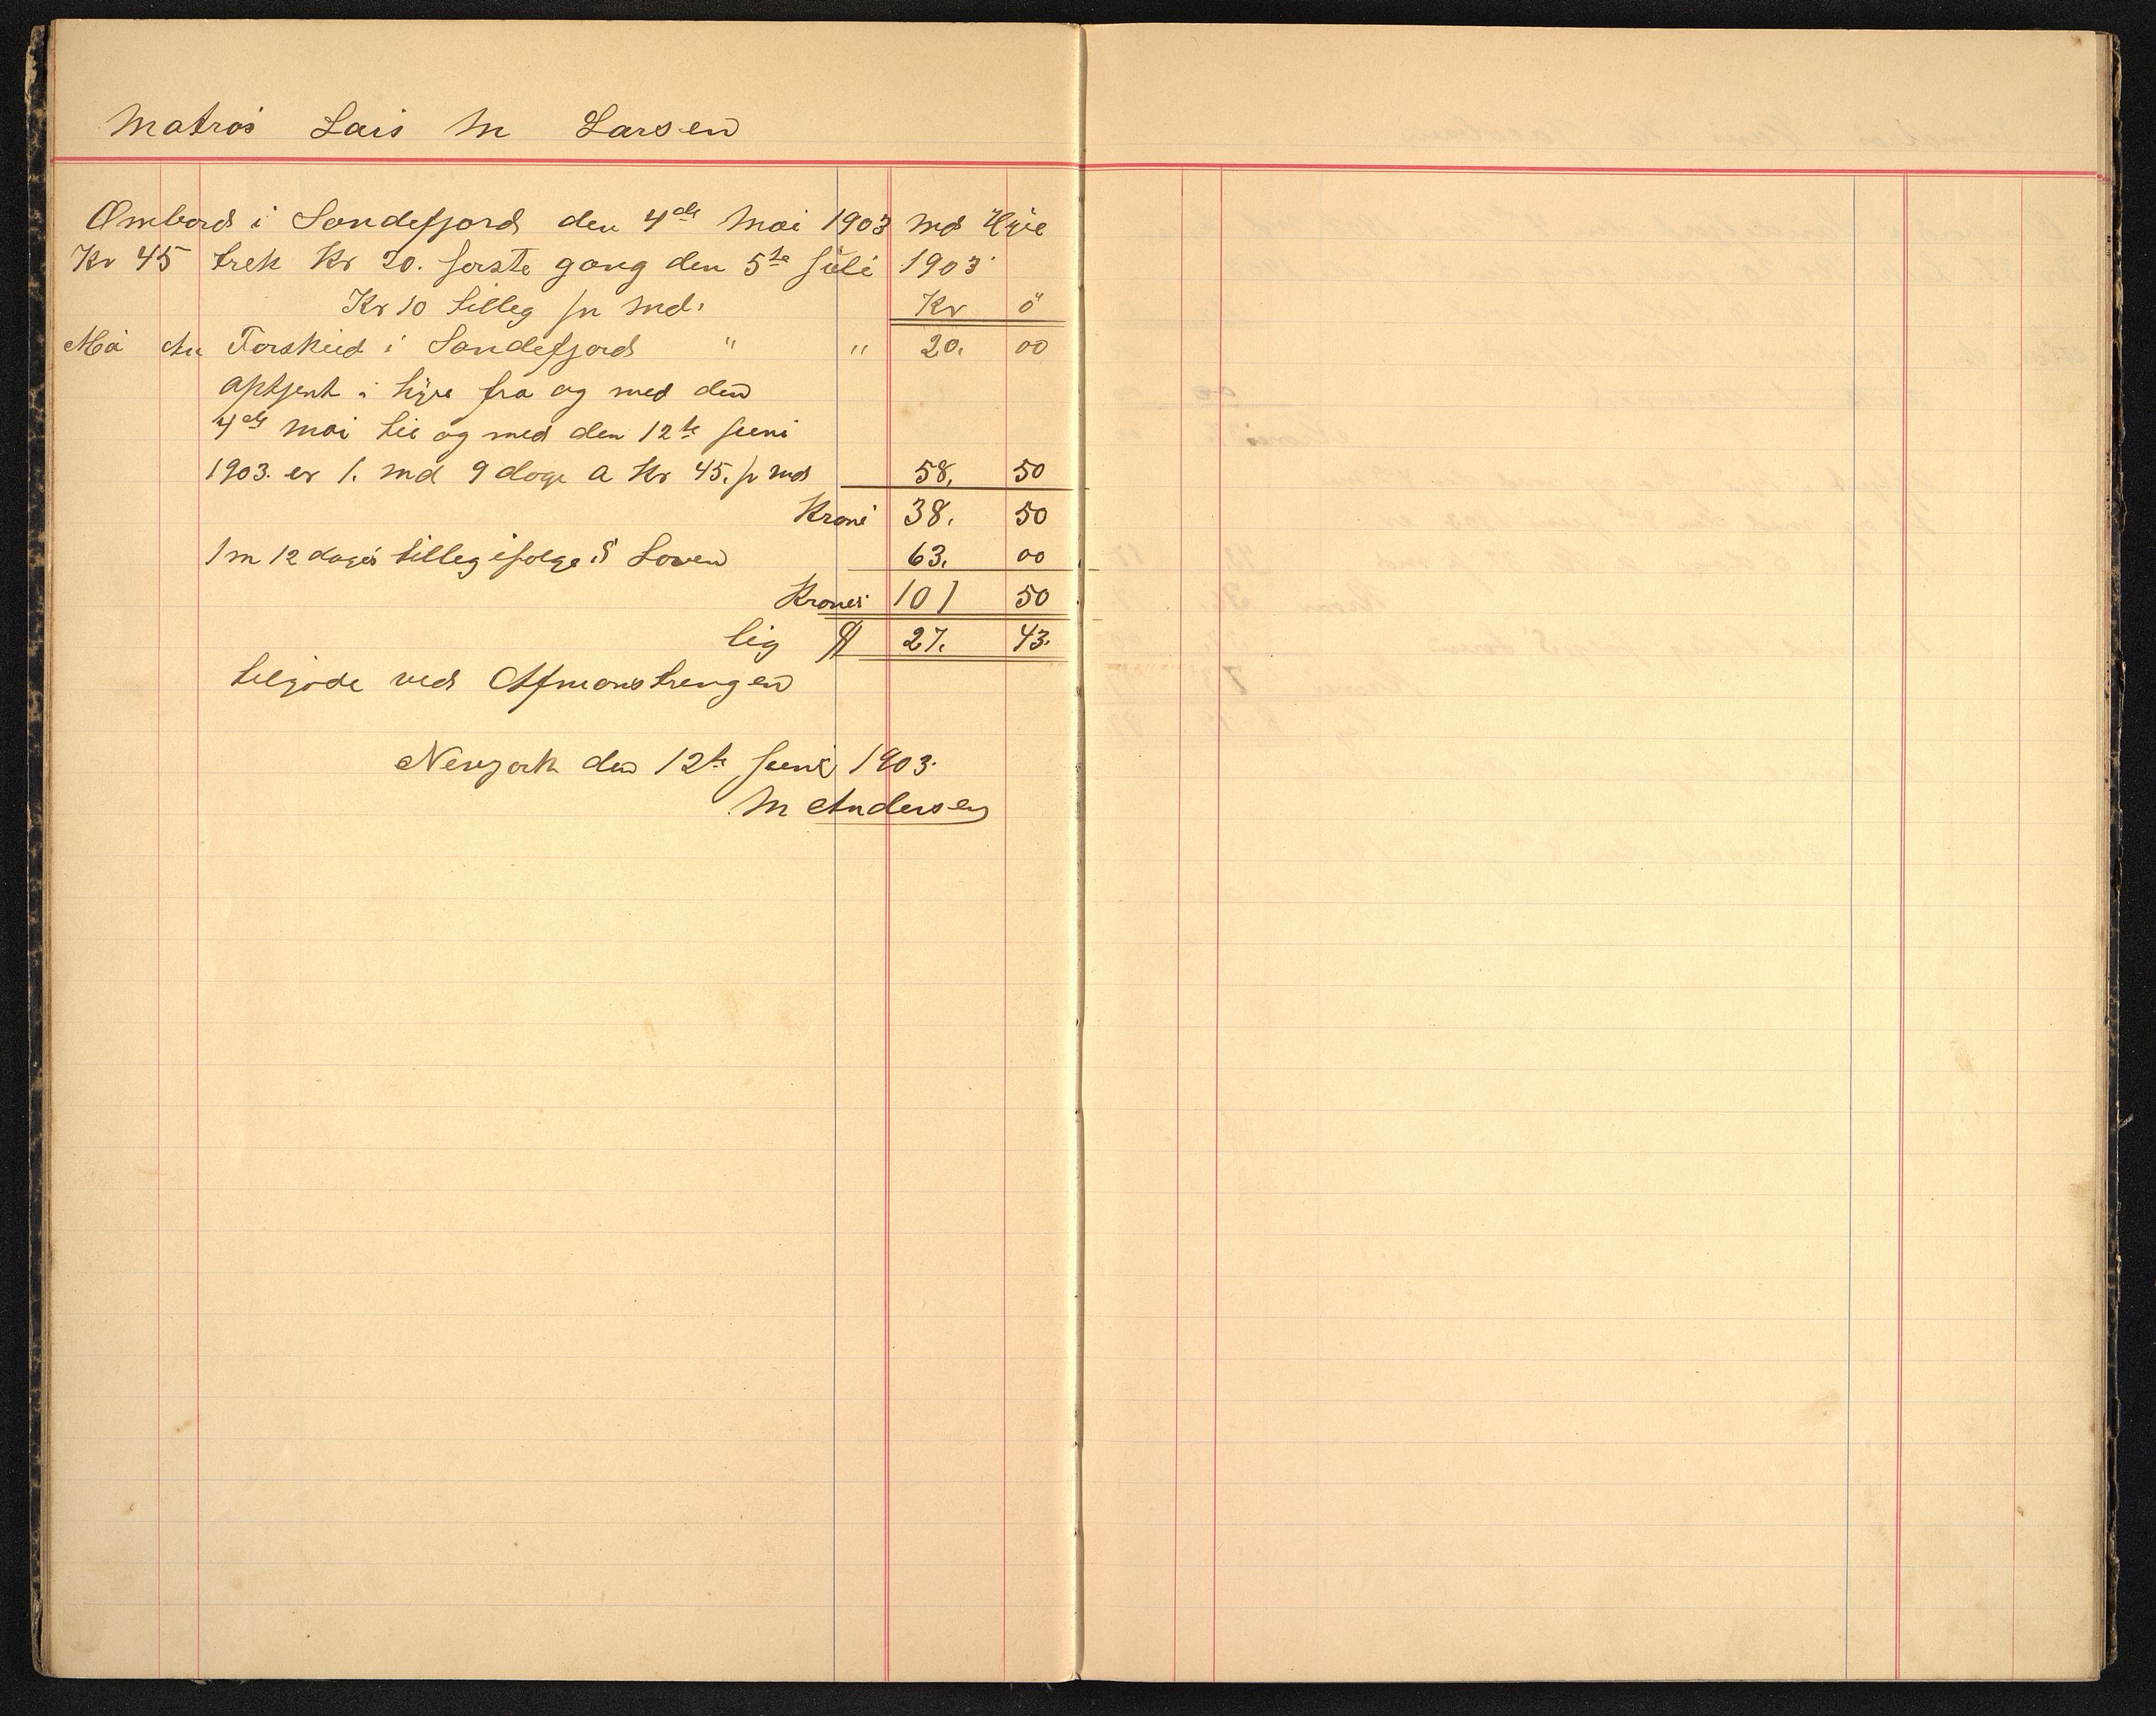 Matros Lars M Larsen
Ombord i Sandefjord den 4de Mai 1903 Md Hyre
Kr 45 trek Kr 20. første gang den 5te Juli 1903
Kr 10 tilleg pr Md. Kr ö
Mai An Forskud i Sandefjord " " 20. 00
Optjent i hyre fra og med den
4de Mai til og med den 12te Juni
1903. er 1. md 9 dage a Kr 45. pr Md 58. 50
Kroner 38. 50
1 m 12 dages tilleg ifølge S Loven 63. 00
Kroner 101 50
lig $ 27. 43.
tilgode ved Afmønstringen
Newyork den 12te Juni 1903.
M Andersen